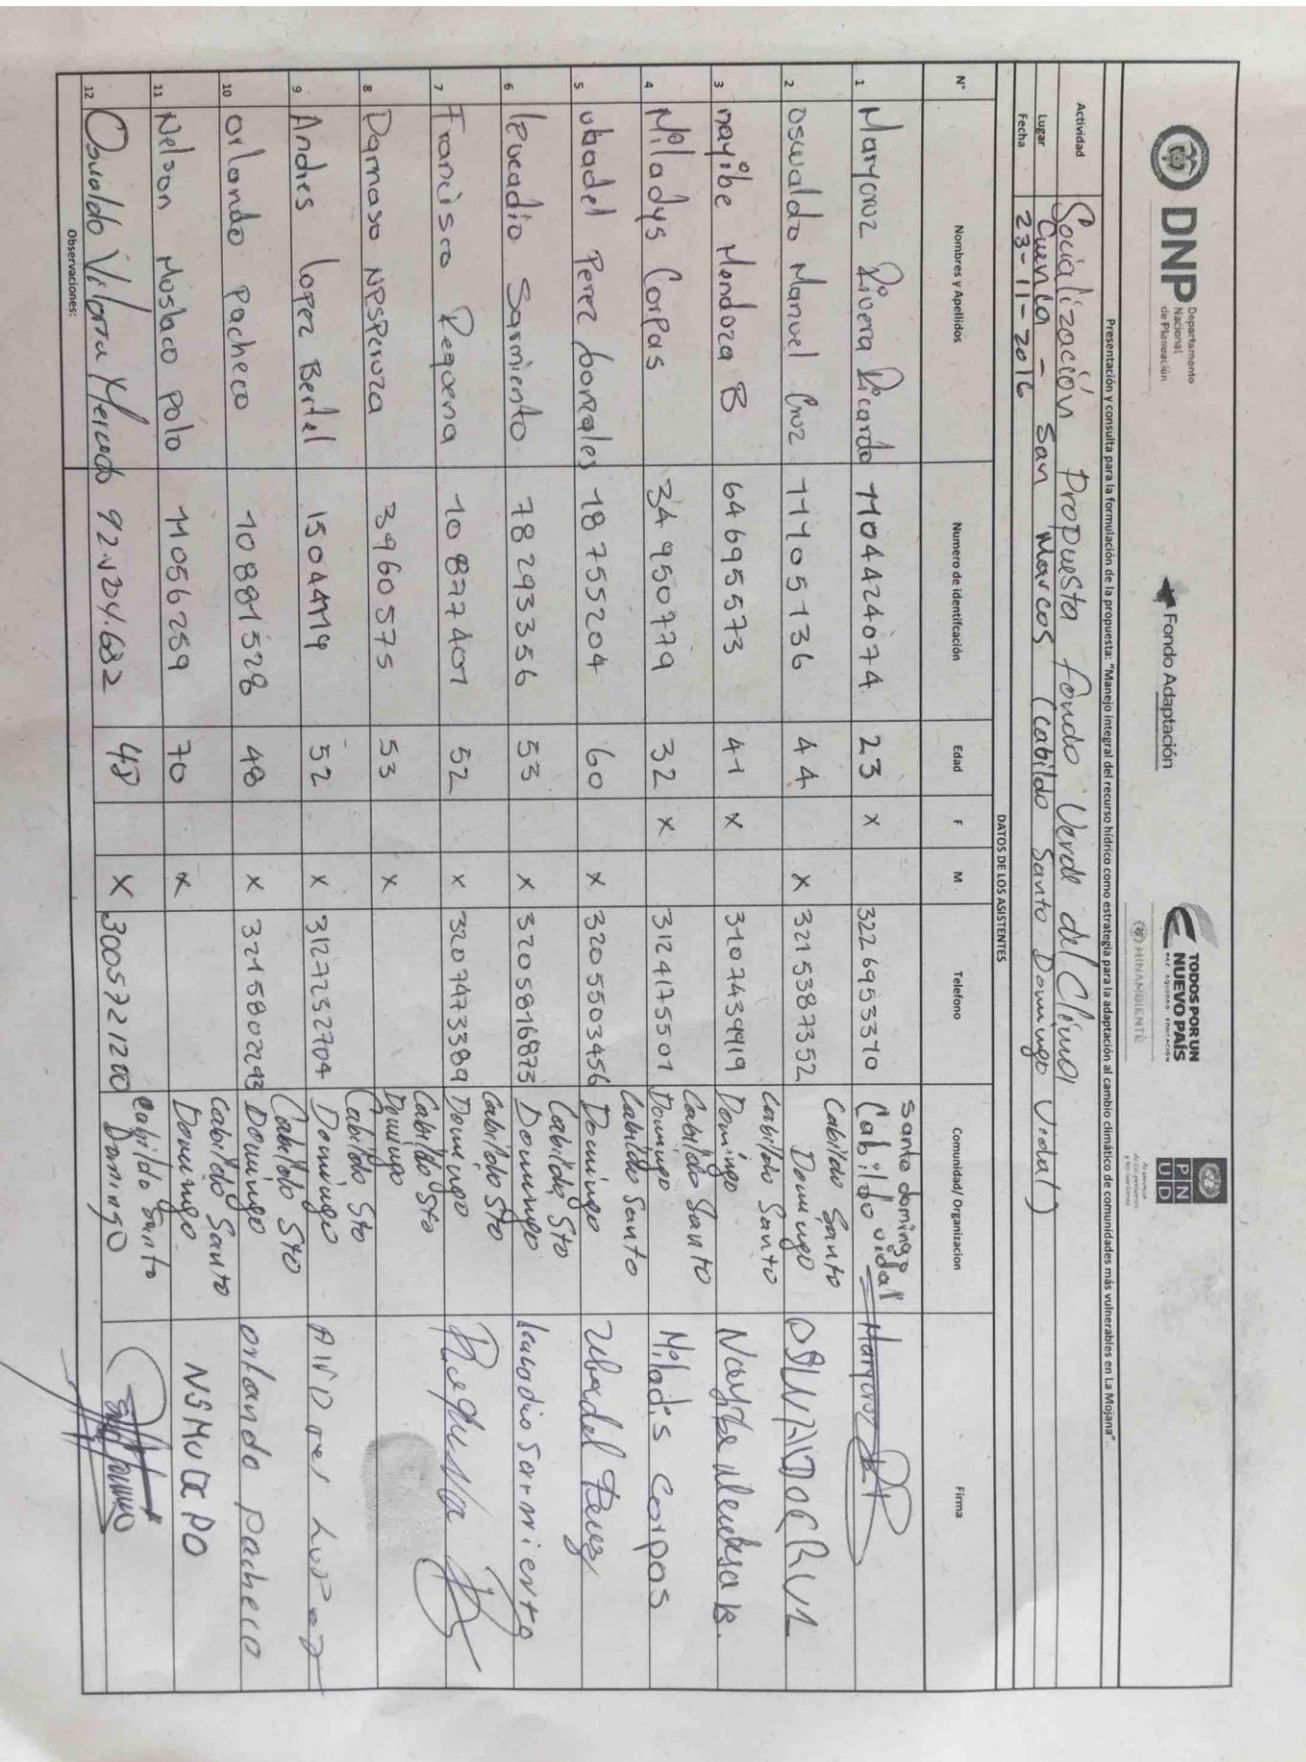 DNP Departamento
Nacional
de Planeación
Fondo Adaptación
TODOS POR UN
NUEVO PAÍS
PAZ EQUIDAD EDUCACIÓN
MINAMBIENTE
PNUD
Presentación y consulta para la formulación de la propuesta: "Manejo integral del recurso hídrico como estrategia para la adaptación al cambio climático de comunidades más vulnerables en La Mojana".
Actividad Socialización Propuesta fondo Verde del Clima
Lugar Cuenca - San Marcos (Cabildo Santo Domingo Vidal)
Fecha 23-11-2016
DATOS DE LOS ASISTENTES
N° Nombres y Apellidos Numero de identifcación Edad F M Telefono Comunidad/ Organizacion Firma
1 Marycruz Rivera Ricardo 1104424074 23 x 3226953310 Santo domingo Cabildo vidal Marycruz
2 Oswaldo Manuel Cruz 11105136 44 x 3215387352 Cabildo Santo Domingo OSWALDO CRUZ
3 nayibe Mendoza B 64695573 41 x 3107439919 Cabildo Santo Domingo Nayibe Mendoza B.
4 Miladys Corpas 34950779 32 x 3124175501 Cabildo Santo Domingo Miladis Corpas
5 ubadel Perez gonzales 18755204 60 x 3205503456 Cabildo Santo Domingo Ubadel Perez
6 leucadio Sarmiento 78293356 53 x 3205816873 Cabildo Sto Domingo leucadio Sarmiento
7 Francisco Requena 10877401 52 x 3207473389 Cabildo Sto Domingo Requena
8 Damaso 3960575 53 x Cabildo Sto Domingo
9 Andres Lopez Bertel 15044119 52 x 3127252704 Cabildo Sto Domingo
10 Orlando Pacheco 10881528 48 x 3215802293 Cabildo Sto Domingo Orlando Pacheco
11 Nelson Mostaco Polo 11056259 70 x Cabildo Santo Domingo
12 Osvaldo Viloria Mercado 92.204.682 48 X 3005721200 Cabildo Santo Domingo
Observaciones: